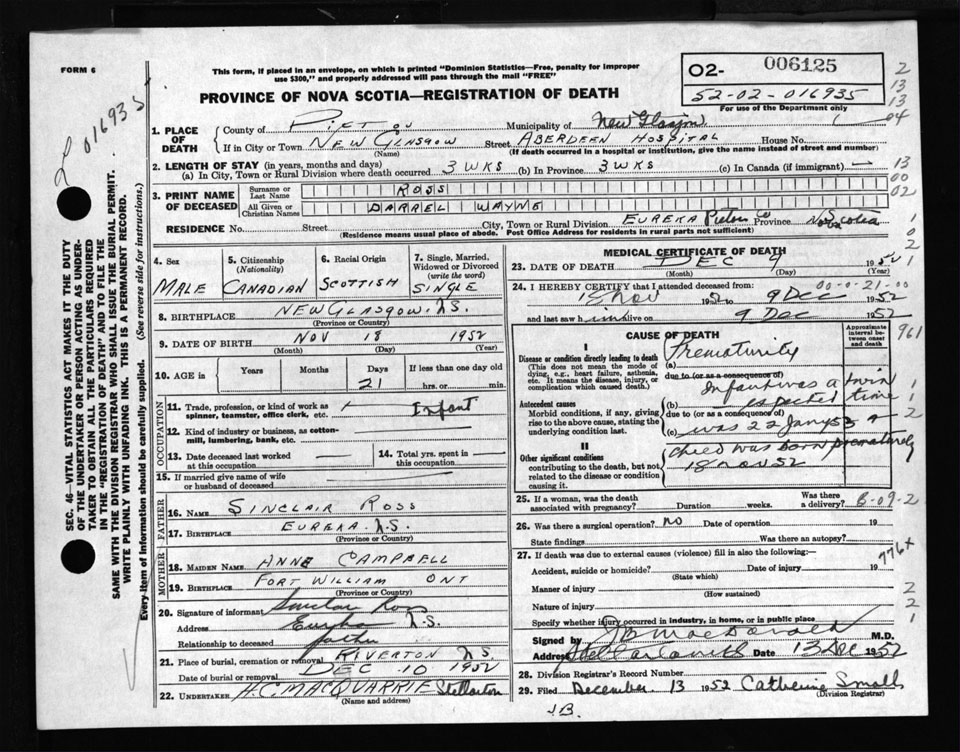 FORM 6
This form, if placed in an envelope, on which is printed "Dominion Statistics—Free, penalty for improper
use $300," and properly addressed will pass through the mail "FREE"
PROVINCE OF NOVA SCOTIA—REGISTRATION OF DEATH
02- 006125
52-02-016935
For use of the Department only
016935
SEC. 46—VITAL STATISTICS ACT MAKES IT THE DUTY
OF THE UNDERTAKER OR PERSON ACTING AS UNDER-
TAKER TO OBTAIN ALL THE PARTICULARS REQUIRED
IN THE "REGISTRATION OF DEATH" AND TO FILE THE
SAME WITH THE DIVISION REGISTRAR WHO SHALL ISSUE THE BURIAL PERMIT.
WRITE PLAINLY WITH UNFADING INK. THIS IS A PERMANENT RECORD.
Every item of Information should be carefully supplied. (See reverse side for instructions.)
1. PLACE OF DEATH
County of PICTOU Municipality of New Glasgow
If in City or Town NEW GLASGOW Street ABERDEEN HOSPITAL House No.
(Name) (If death occurred in a hospital or institution, give the name instead of street and number)
2. LENGTH OF STAY (in years, months and days)
(a) In City, Town or Rural Division where death occurred 3 WKS (b) In Province 3 WKS (c) In Canada (if immigrant) —
3. PRINT NAME OF DECEASED
Surname or Last Name ROSS
All Given or Christian Names DARREL WAYNE
RESIDENCE No. Street City, Town or Rural Division EUREKA Pictou Co Province Nova Scotia
(Residence means usual place of abode. Post Office Address for residents in rural parts not sufficient)
4. Sex MALE
5. Citizenship (Nationality) CANADIAN
6. Racial Origin SCOTTISH
7. Single, Married, Widowed or Divorced (write the word) SINGLE
8. BIRTHPLACE NEW GLASGOW, N.S.
(Province or Country)
9. DATE OF BIRTH NOV 18 1952
(Month) (Day) (Year)
10. AGE in Years Months Days 21 If less than one day old hrs. or min.
OCCUPATION
11. Trade, profession, or kind of work as spinner, teamster, office clerk, etc. Infant
12. Kind of industry or business, as cotton-mill, lumbering, bank, etc.
13. Date deceased last worked at this occupation
14. Total yrs. spent in this occupation
15. If married give name of wife or husband of deceased
FATHER
16. NAME SINCLAIR ROSS
17. BIRTHPLACE EUREKA N.S.
(Province or Country)
MOTHER
18. MAIDEN NAME ANNE CAMPBELL
19. BIRTHPLACE FORT WILLIAM ONT
(Province or Country)
20. Signature of informant Sinclair Ross
Address Eureka N.S.
Relationship to deceased father
21. Place of burial, cremation or removal RIVERTON NS
Date of burial or removal DEC 10 1952
22. UNDERTAKER H.C. MACQUARRIE Stellarton
(Name and address)
MEDICAL CERTIFICATE OF DEATH
23. DATE OF DEATH DEC 9 1952
(Month) (Day) (Year)
24. I HEREBY CERTIFY that I attended deceased from:
18 Nov 1952 to 9 Dec 1952
00-0-21-00
and last saw him alive on 9 Dec 1952
CAUSE OF DEATH
Approximate interval between onset and death
I
Disease or condition directly leading to death
(This does not mean the mode of dying, e.g., heart failure, asthenia, etc. It means the disease, injury, or complication which caused death.)
(a) Prematurity
due to (or as a consequence of)
Antecedent causes
Morbid conditions, if any, giving rise to the above cause, stating the underlying condition last.
Infant was a twin
(b) expected time
due to (or as a consequence of)
(c) was 22 Jany 53 &
II
Other significant conditions
contributing to the death, but not related to the disease or condition causing it.
child was born prematurely
18 Nov 52
961
25. If a woman, was the death associated with pregnancy? Duration weeks. Was there a delivery? B-09-2
26. Was there a surgical operation? no Date of operation 19
State findings Was there an autopsy?
27. If death was due to external causes (violence) fill in also the following:—
776X
Accident, suicide or homicide? Date of injury 19
(State which)
Manner of injury
(How sustained)
Nature of injury
Specify whether injury occurred in industry, in home, or in public place
Signed by J B MacDonald M.D.
Address Stellarton NS Date 13 Dec 1952
28. Division Registrar's Record Number
29. Filed December 13 1952 Catherine Smalls
(Division Registrar)
J.B.